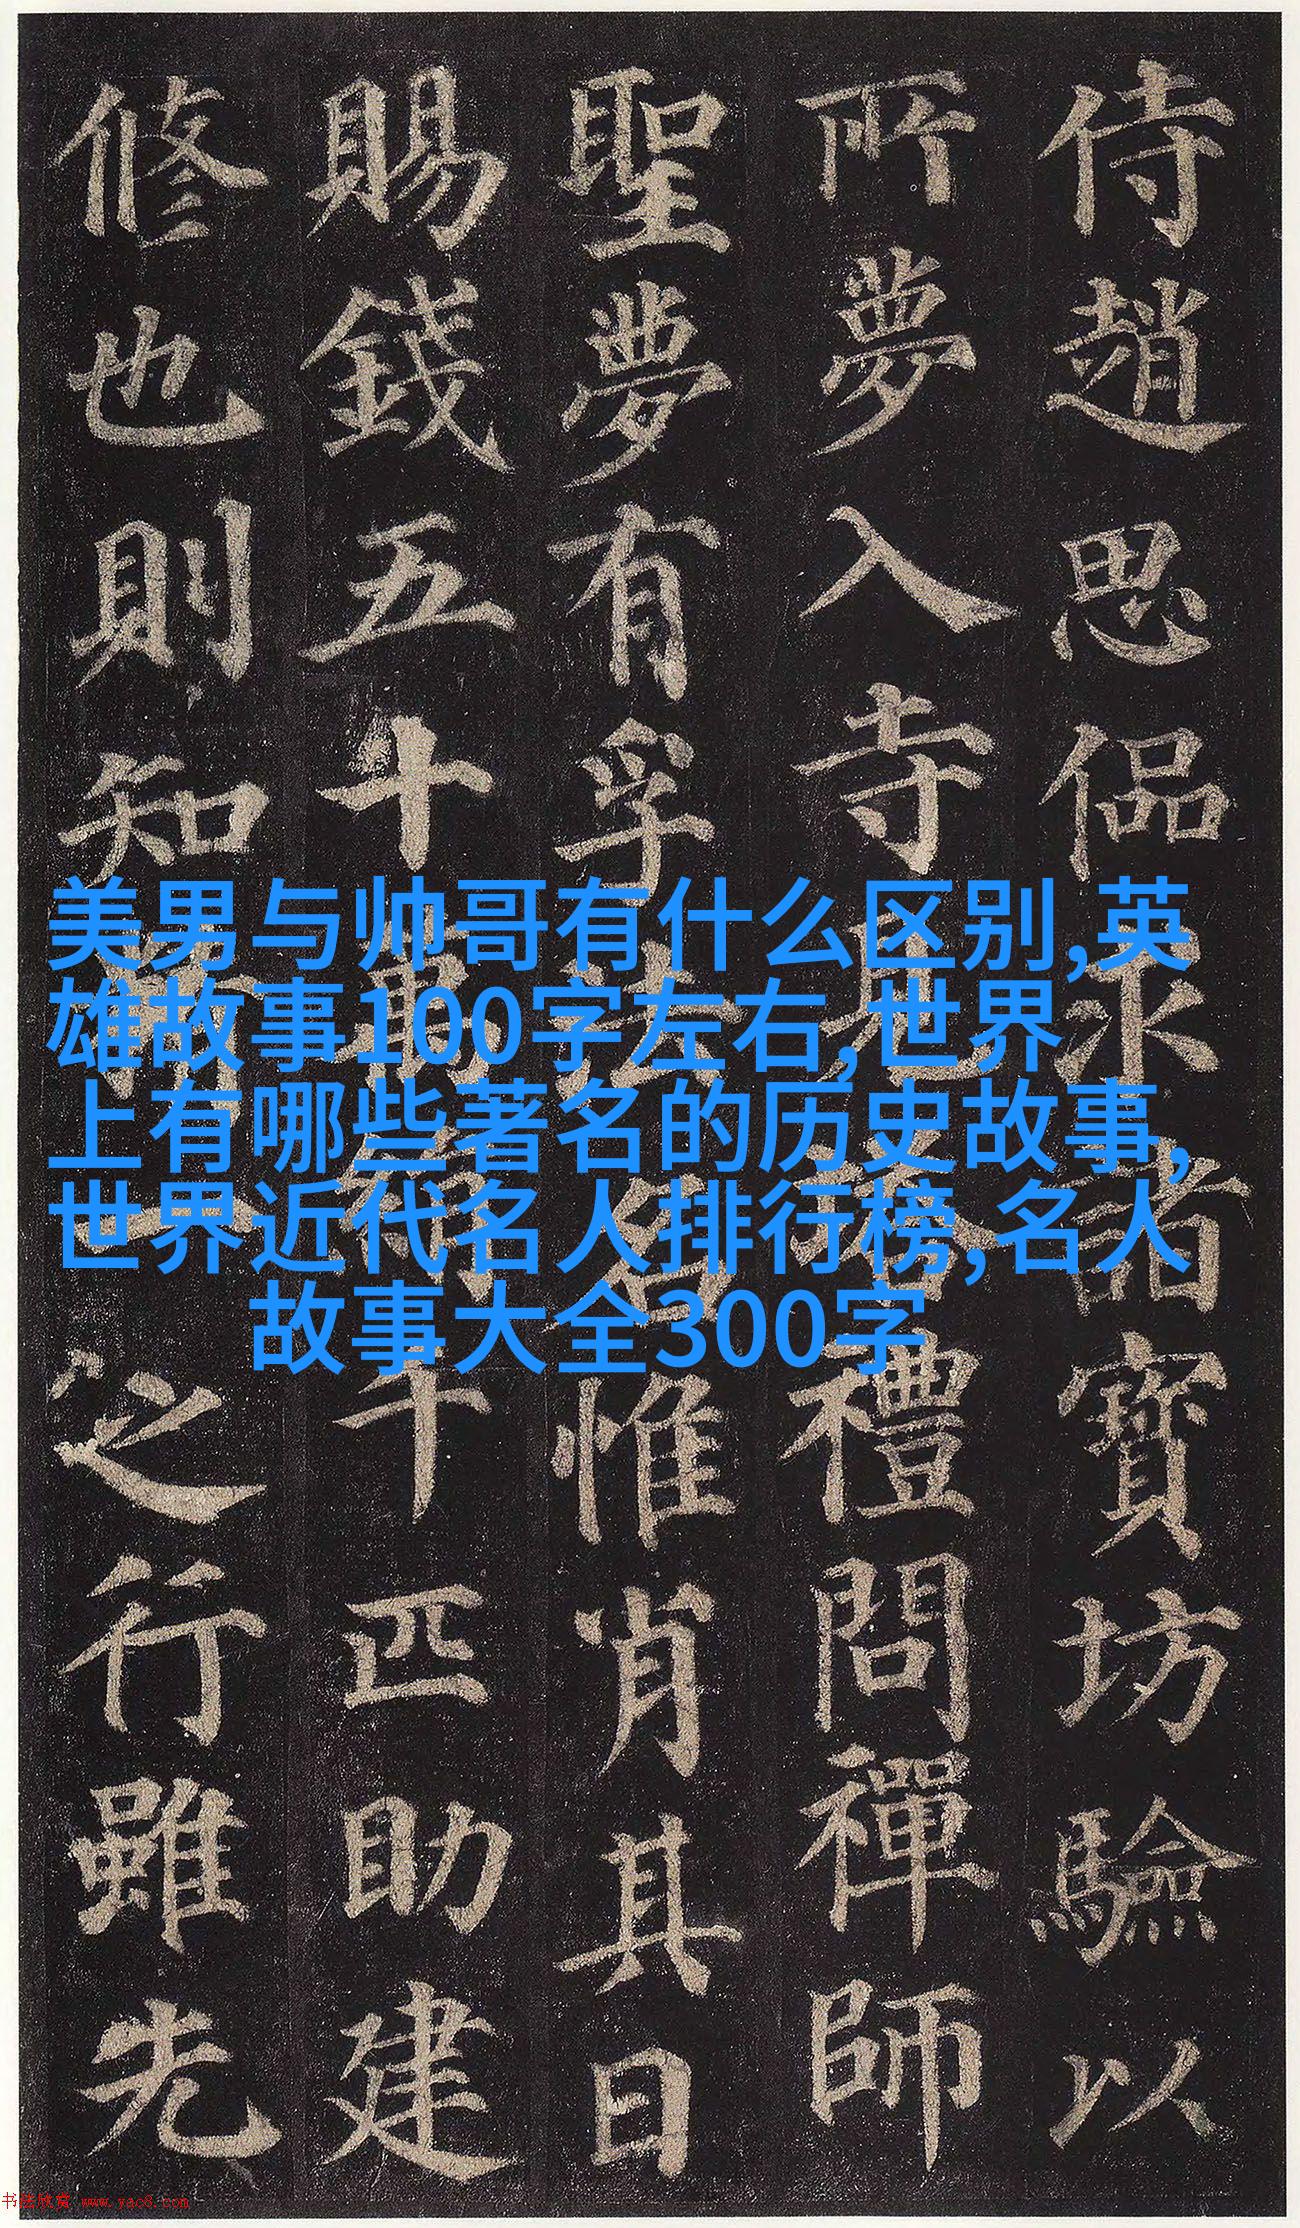 侍趙思偘求諸寶坊驗以
所夢入寺見禮問禪師
聖夢有孚法名惟肖其日
賜錢五十千匹助建
修也則知之行雖先
美男与帅哥有什么区别,英
雄故事100字左右,世界
上有哪些著名的历史故事,
世界近代名人排行榜,名人
故事大全300字
书法欣赏 www.yac8.com